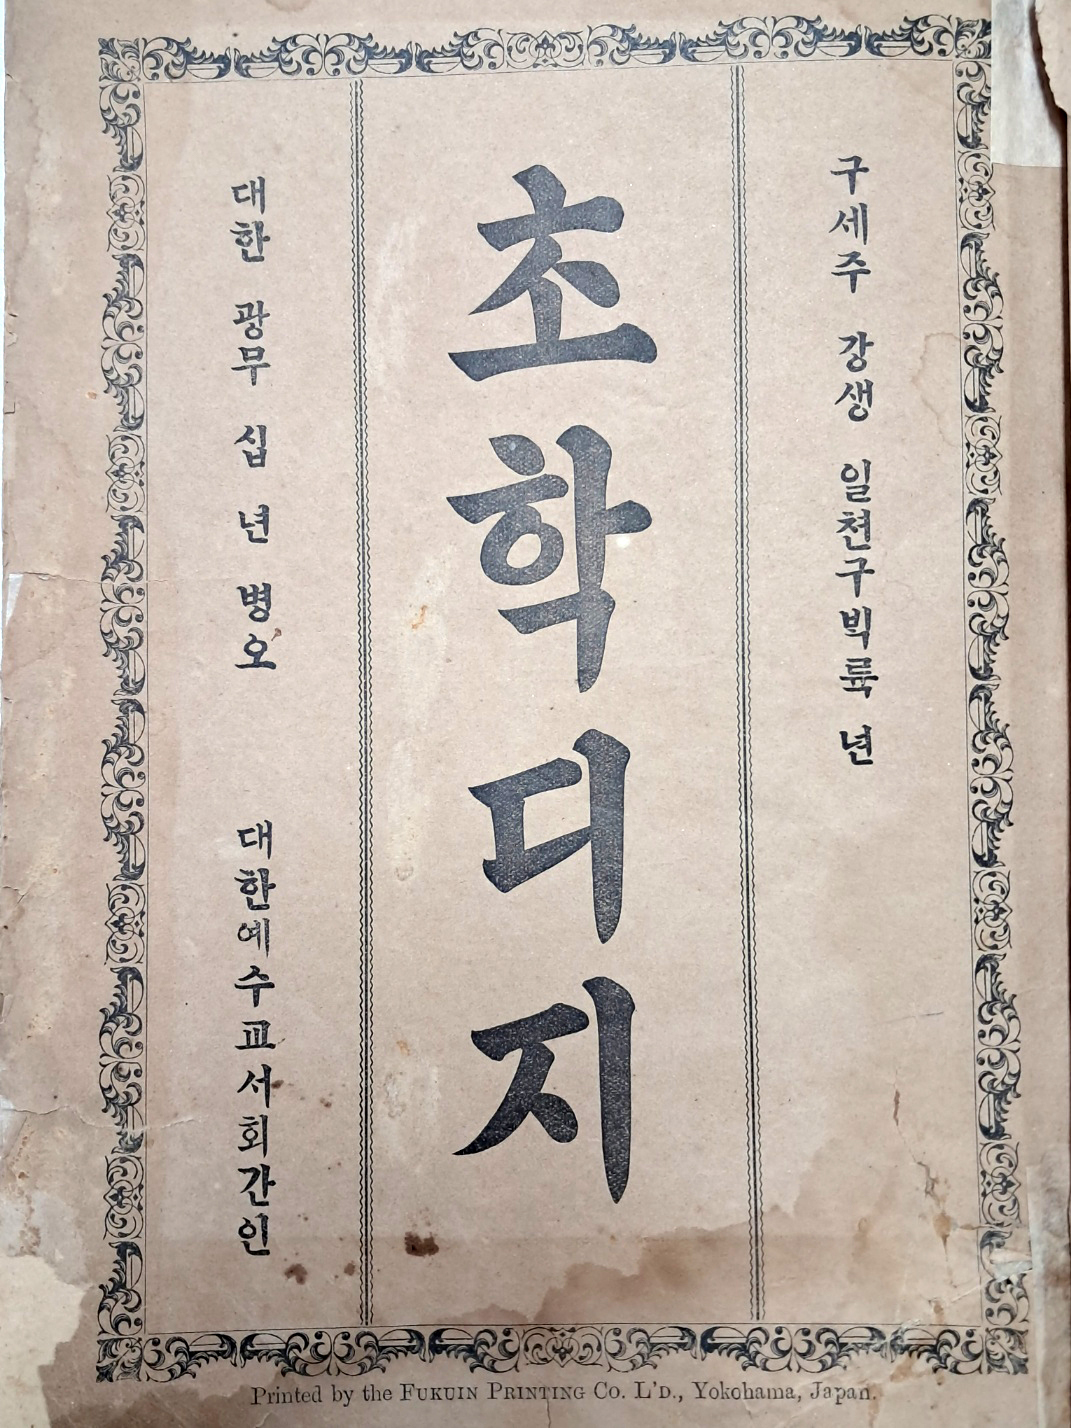 구세주 강생 일쳔구빅륙 년
초학디지
대한 광무 십 년 병오 대한예수교서회간인
Printed by the FUKUIN PRINTING CO. L'D., Yokohama, Japan.